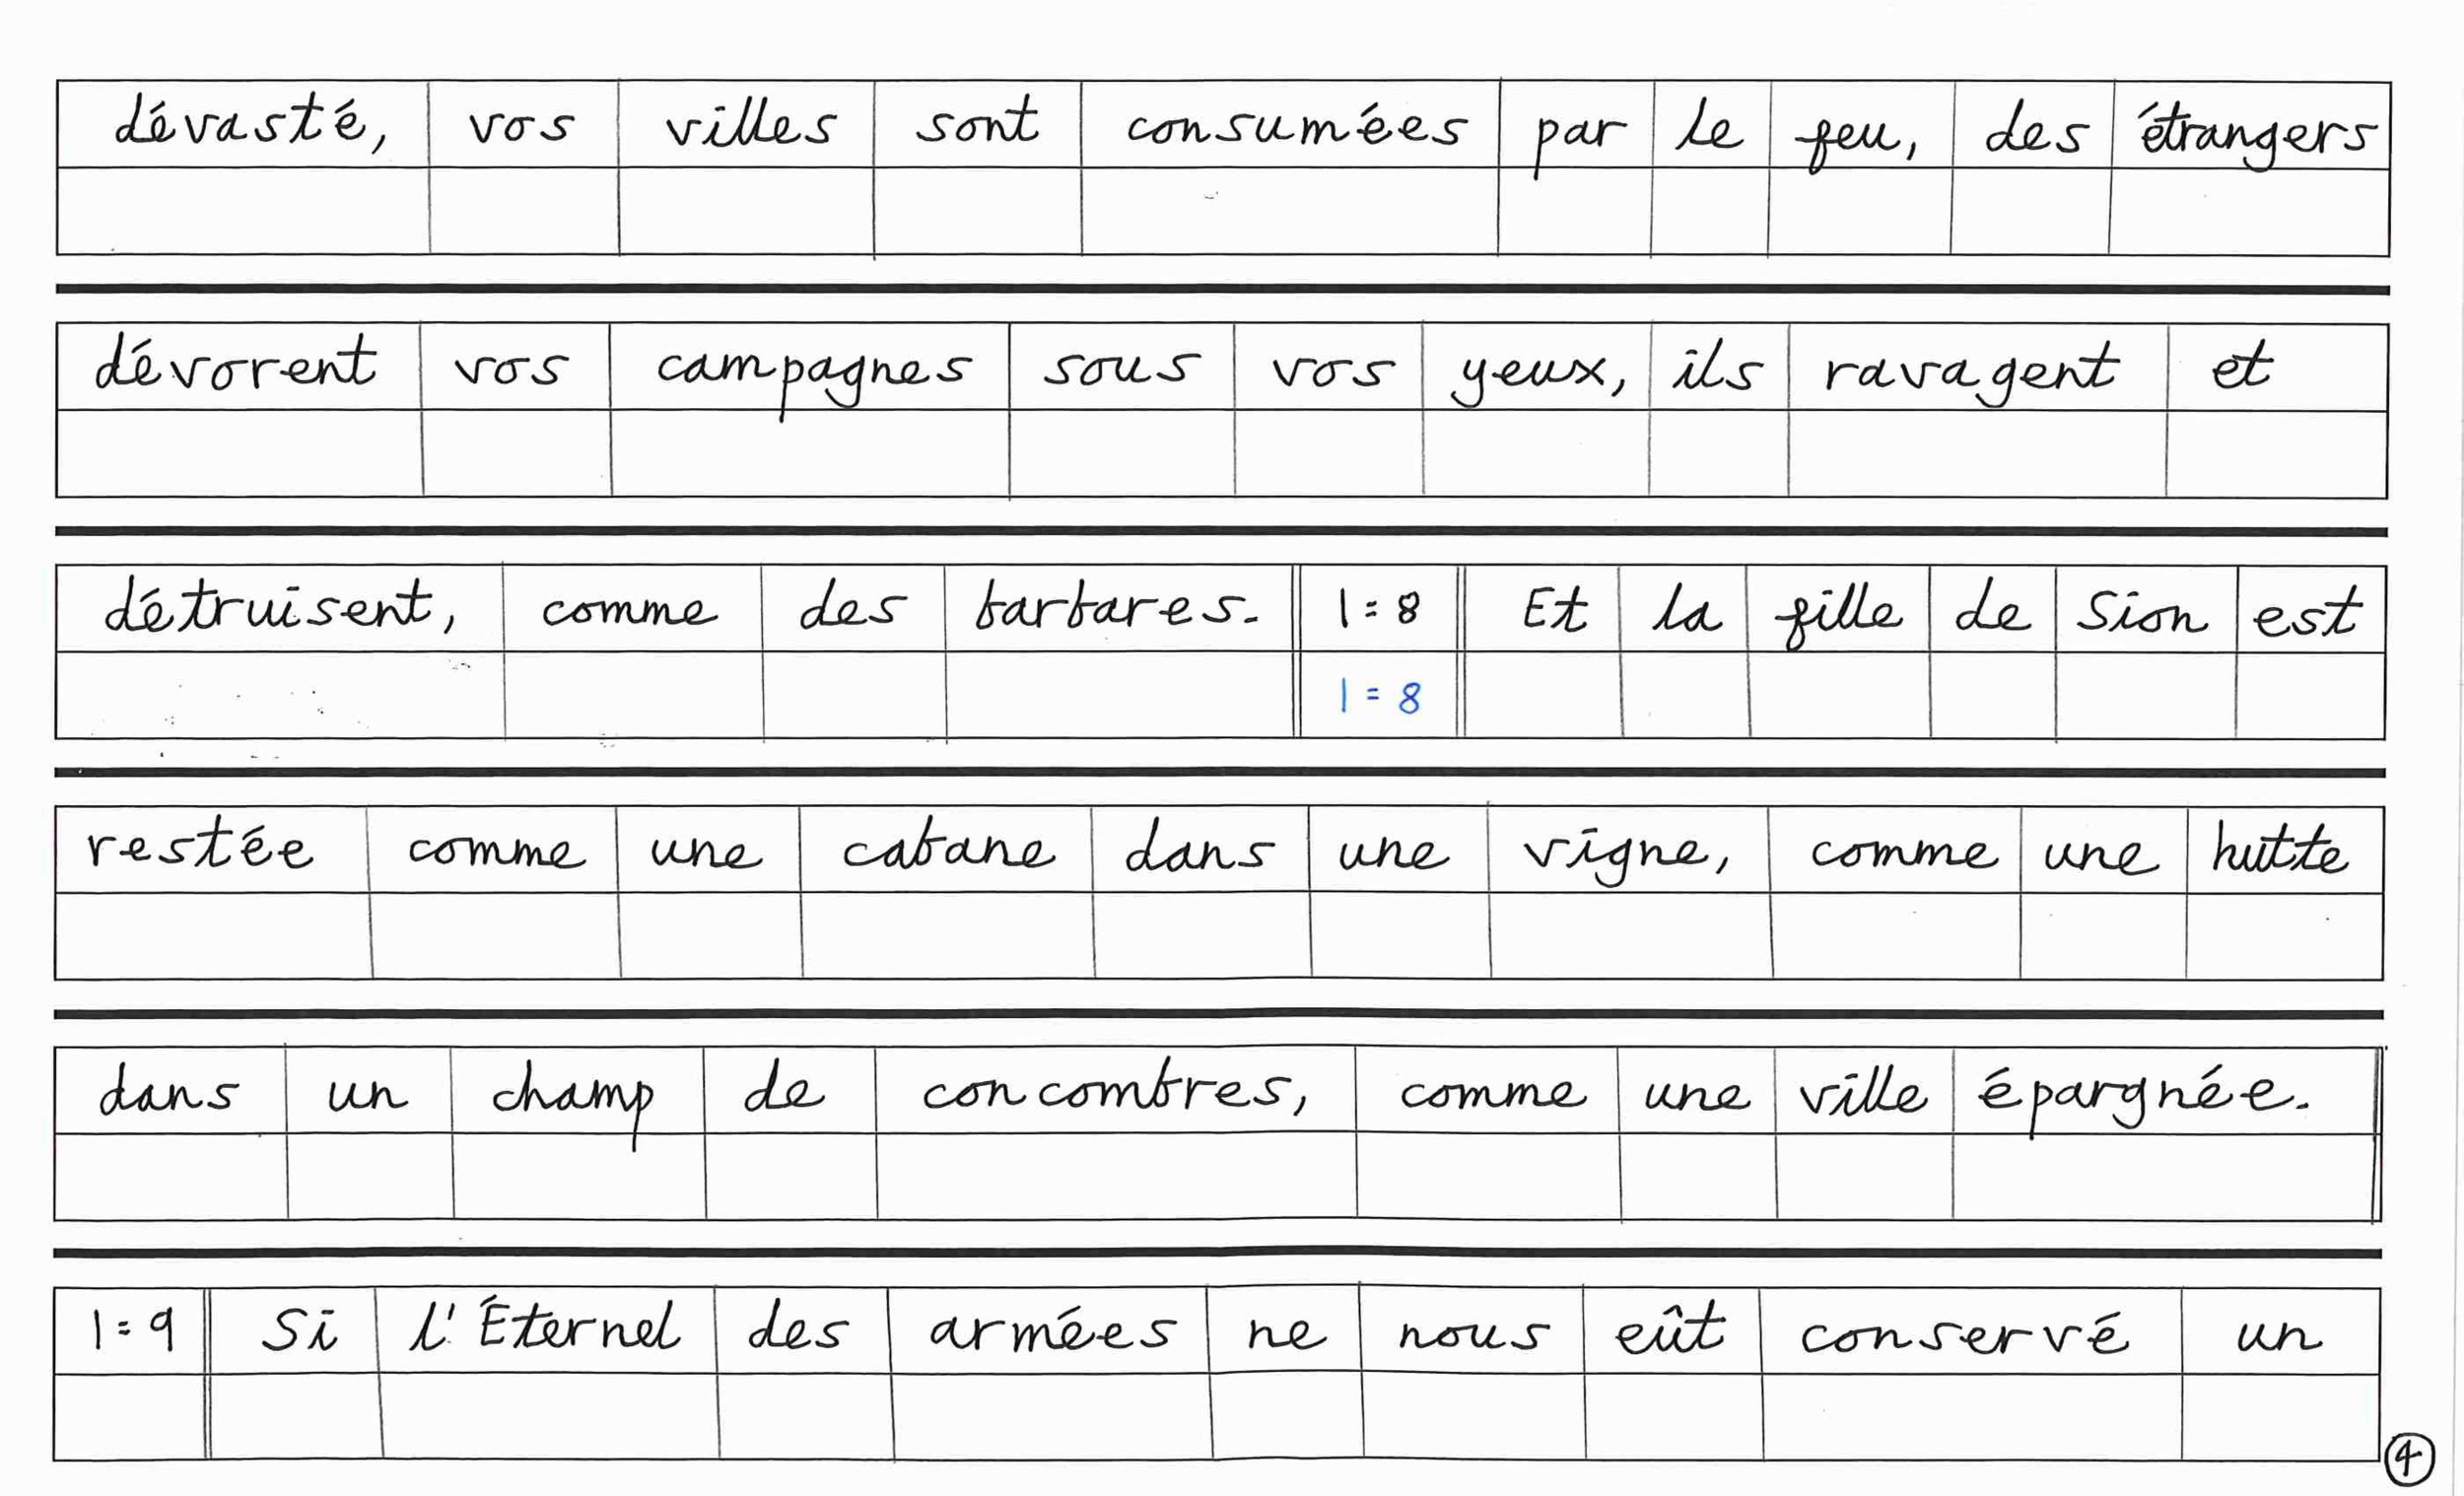 dévasté, vos villes sont consumées par le feu, des étrangers
dévorent vos campagnes sous vos yeux, ils ravagent et
détruisent, comme des barbares. 1=8 Et la fille de Sion est
1=8
restée comme une cabane dans une vigne, comme une hutte
dans un champ de concombres, comme une ville épargnée.
1=9 Si l'Éternel des armées ne nous eût conservé un
4